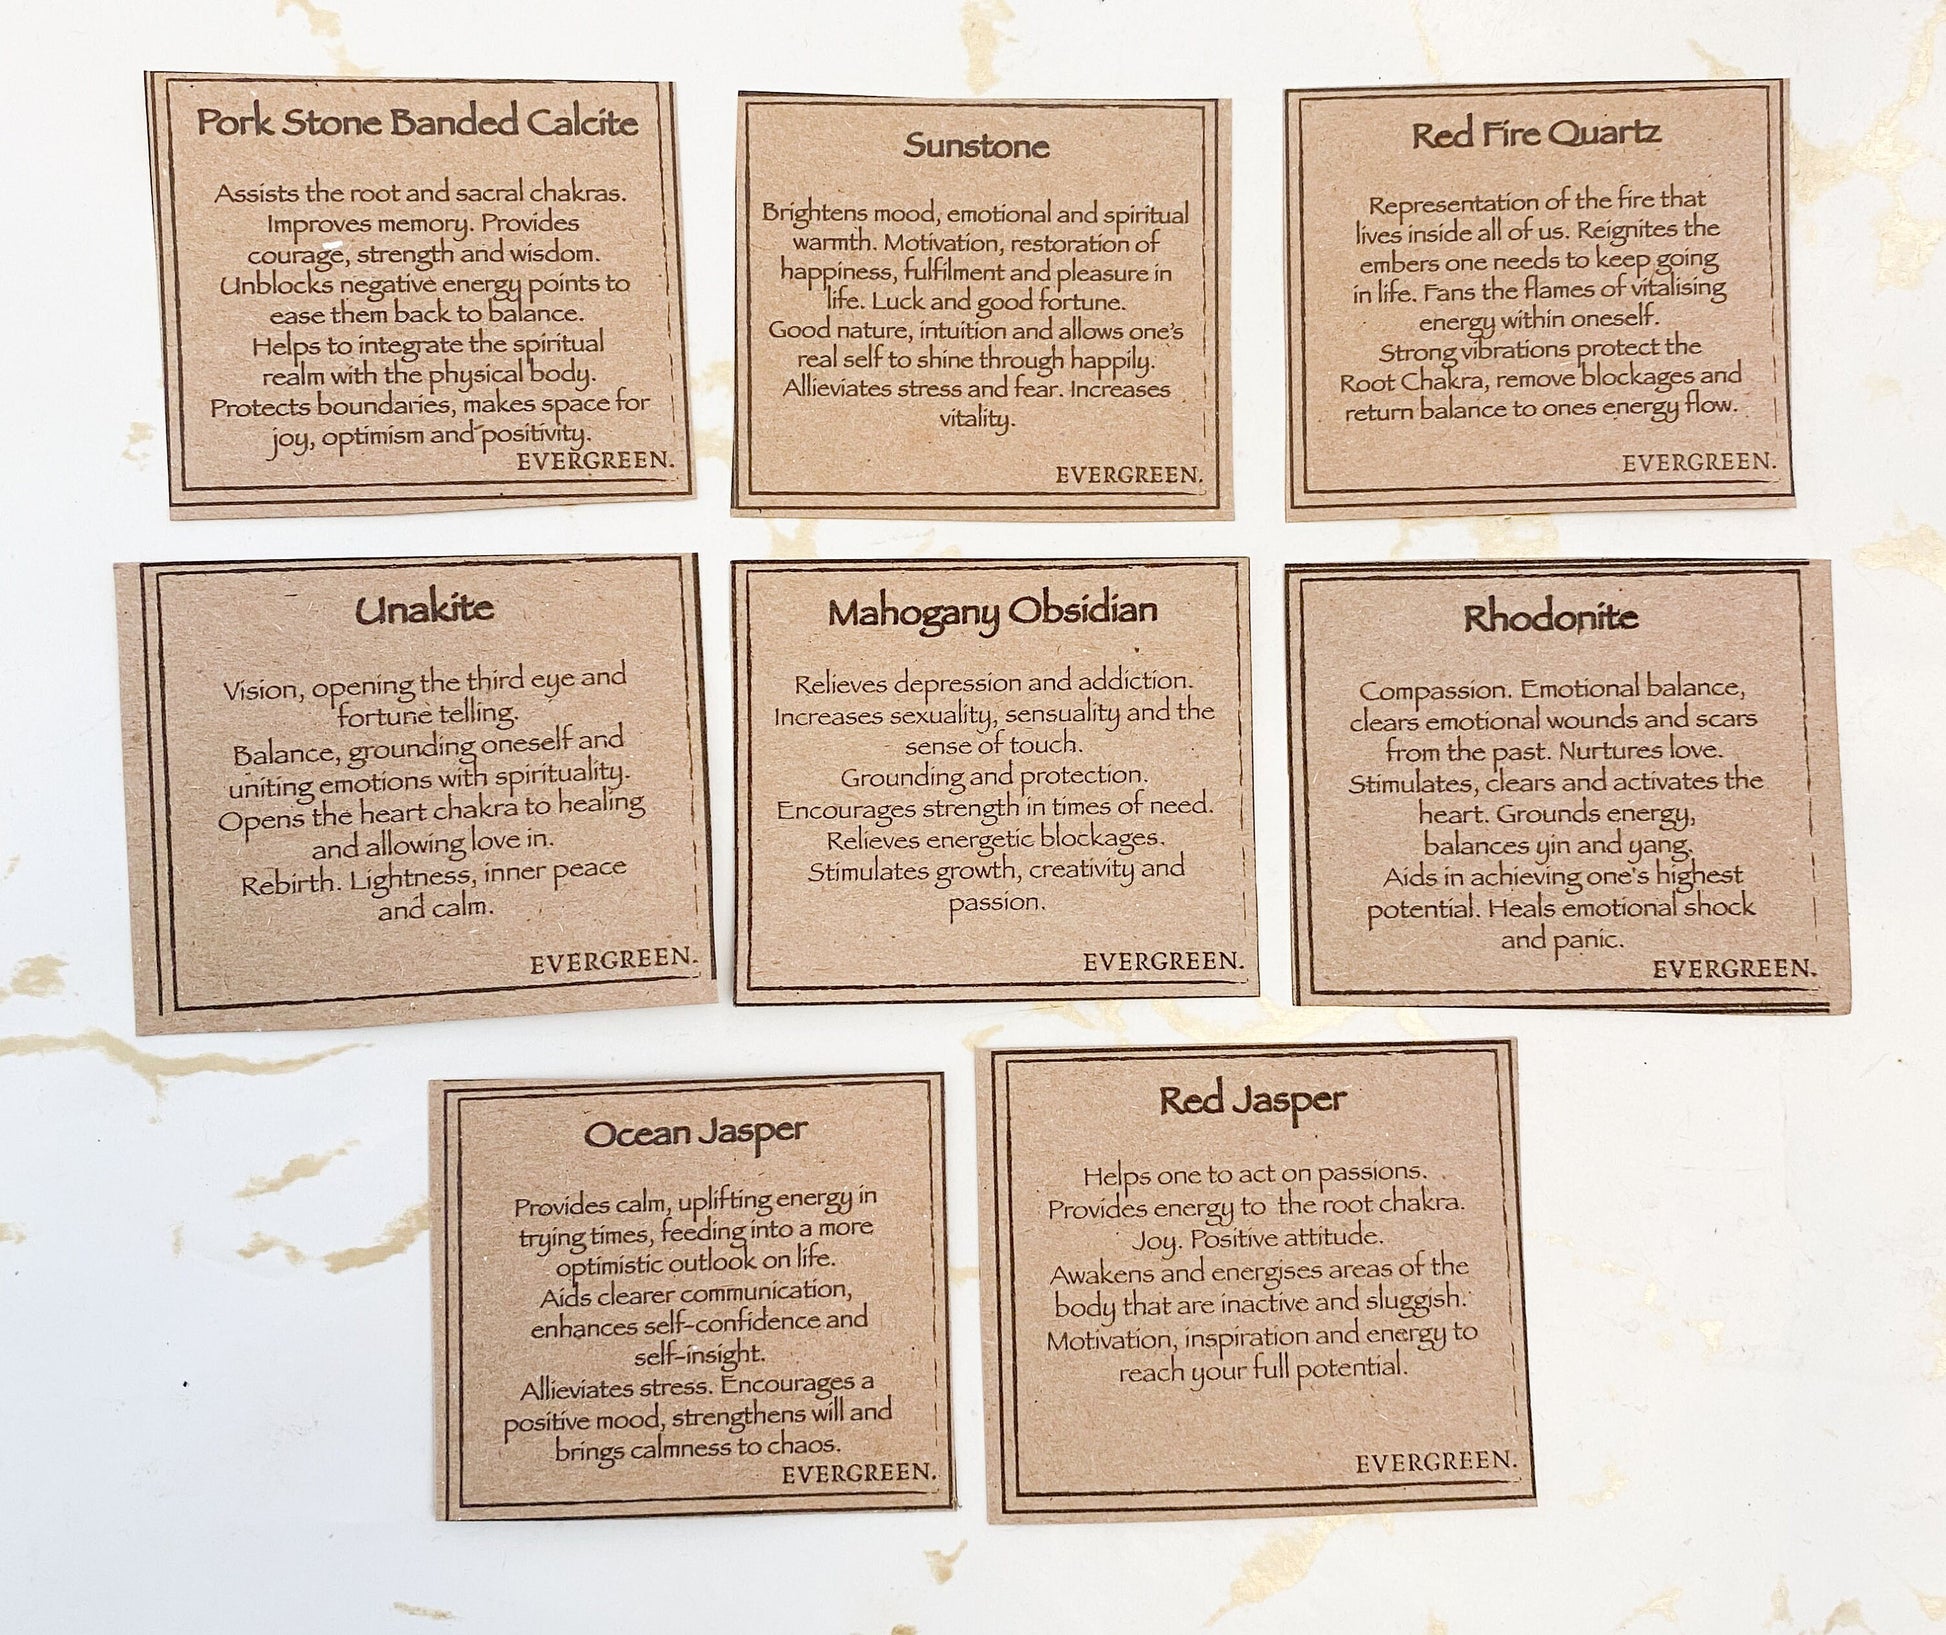 Pork Stone Banded Calcite
Assists the root and sacral chakras.
Improves memory. Provides
courage, strength and wisdom.
Unblocks negative energy points to
ease them back to balance.
Helps to integrate the spiritual
realm with the physical body.
Protects boundaries, makes space for
joy, optimism and positivity.
EVERGREEN.
Sunstone
Brightens mood, emotional and spiritual
warmth. Motivation, restoration of
happiness, fulfilment and pleasure in
life. Luck and good fortune.
Good nature, intuition and allows one's
real self to shine through happily.
Allieviates stress and fear. Increases
vitality.
EVERGREEN.
Red Fire Quartz
Representation of the fire that
lives inside all of us. Reignites the
embers one needs to keep going
in life. Fans the flames of vitalising
energy within oneself.
Strong vibrations protect the
Root Chakra, remove blockages and
return balance to ones energy flow.
EVERGREEN.
Unakite
Vision, opening the third eye and
fortune telling.
Balance, grounding oneself and
uniting emotions with spirituality.
Opens the heart chakra to healing
and allowing love in.
Rebirth. Lightness, inner peace
and calm.
EVERGREEN.
Mahogany Obsidian
Relieves depression and addiction.
Increases sexuality, sensuality and the
sense of touch.
Grounding and protection.
Encourages strength in times of need.
Relieves energetic blockages.
Stimulates growth, creativity and
passion.
EVERGREEN.
Rhodonite
Compassion. Emotional balance,
clears emotional wounds and scars
from the past. Nurtures love.
Stimulates, clears and activates the
heart. Grounds energy,
balances yin and yang.
Aids in achieving one's highest
potential. Heals emotional shock
and panic.
EVERGREEN.
Ocean Jasper
Provides calm, uplifting energy in
trying times, feeding into a more
optimistic outlook on life.
Aids clearer communication,
enhances self-confidence and
self-insight.
Allieviates stress. Encourages a
positive mood, strengthens will and
brings calmness to chaos.
EVERGREEN.
Red Jasper
Helps one to act on passions.
Provides energy to the root chakra.
Joy. Positive attitude.
Awakens and energises areas of the
body that are inactive and sluggish.
Motivation, inspiration and energy to
reach your full potential.
EVERGREEN.